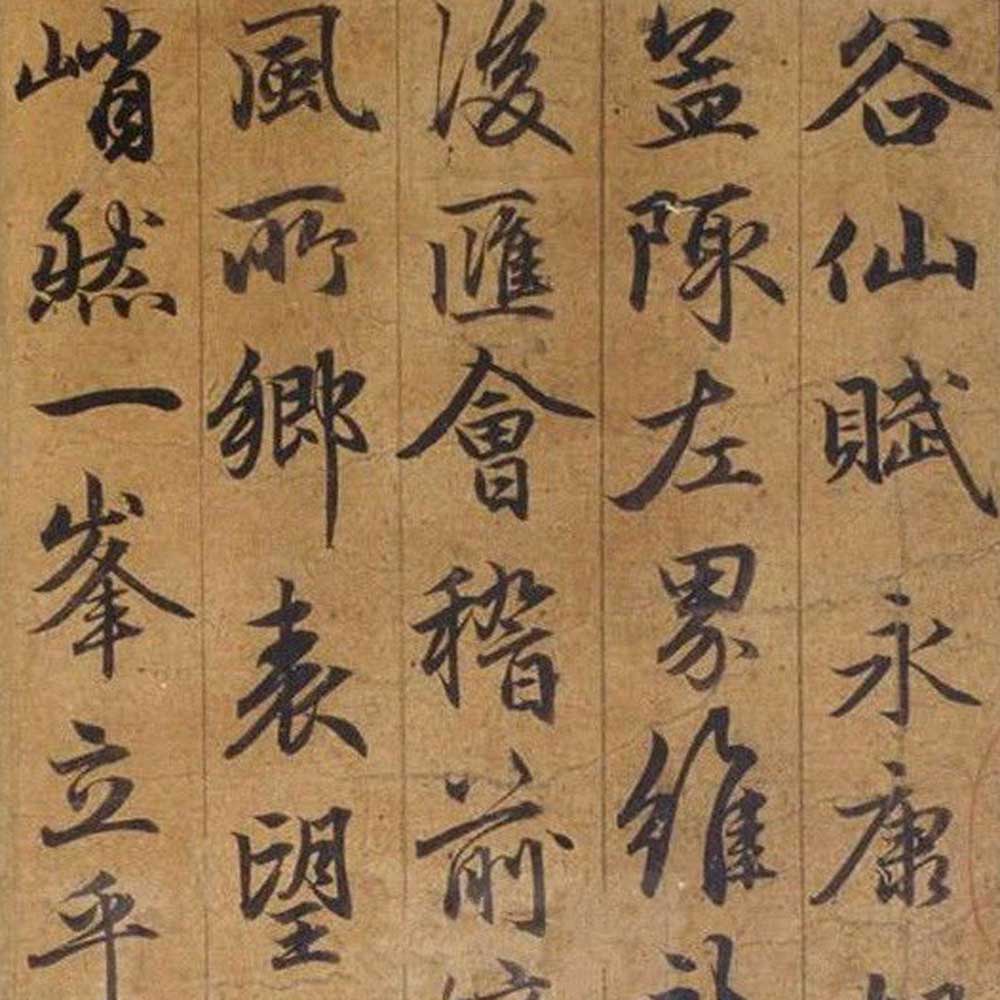 谷仙賦永康
盖陳左界維
後匯會稽前
風所鄉表望
峭然一峯立乎